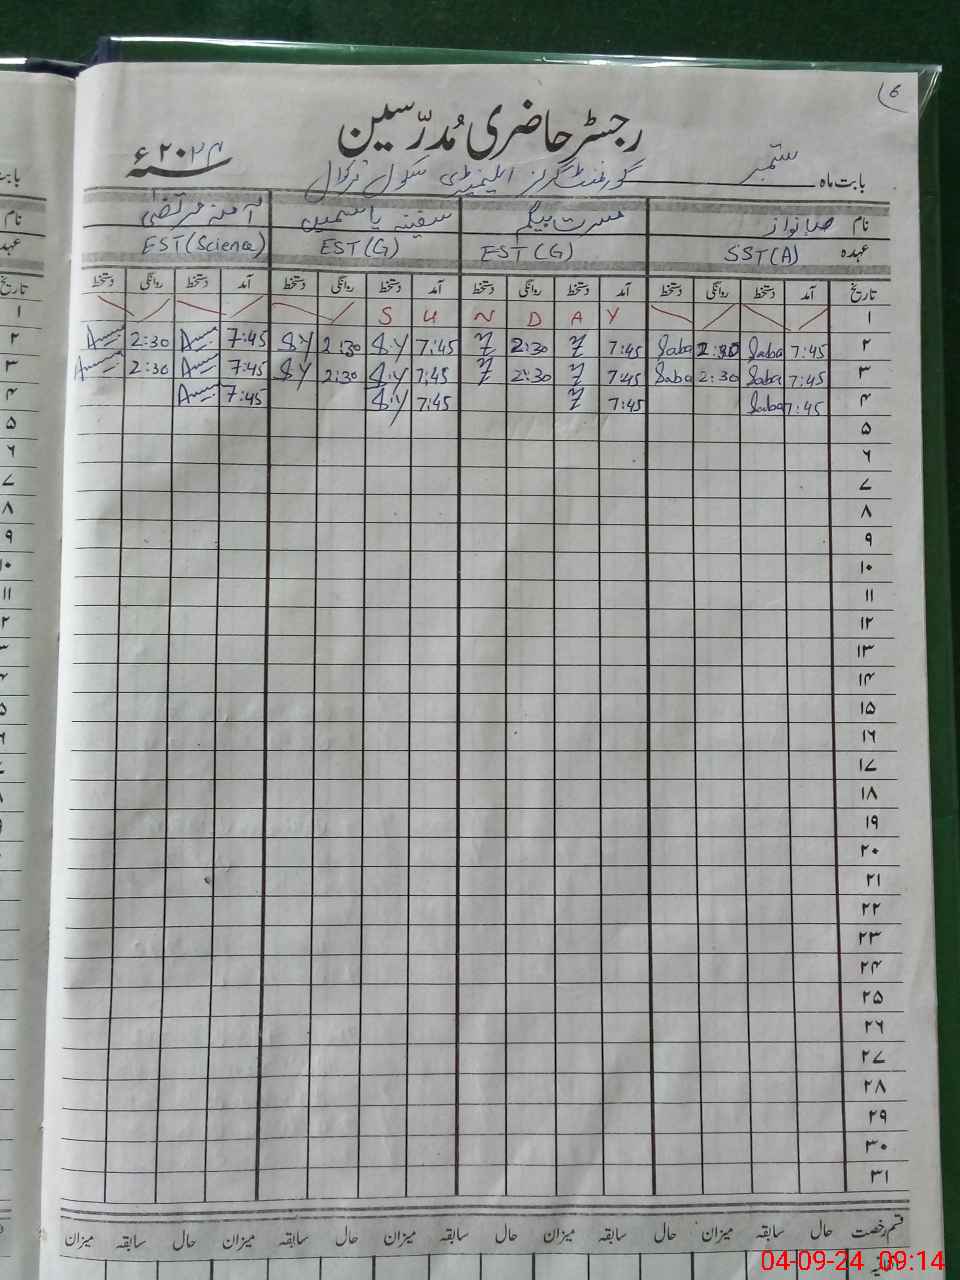 6
رجسٹر حاضری مُدرّسین
بابت ماہ ستمبر گورنمنٹ گرلز ایلیمنٹری سکول ۲۰۲۴ء
نام صبا نواز مسرت بیگم سفینہ یاسمین آمنہ مرتضیٰ
عہدہ SST(A) EST(G) EST(G) EST(Science)
تاریخ آمد دستخط روانگی دستخط آمد دستخط روانگی دستخط آمد دستخط روانگی دستخط آمد دستخط روانگی دستخط
۱ S U N D A Y
۲ 7:45 Saba 2:30 Saba 7:45 2:30 7:45 S.Y 2:30 S.Y 7:45 2:30
۳ 7:45 Saba 2:30 Saba 7:45 2:30 7:45 S.Y 2:30 S.Y 7:45 2:30
۴ 7:45 Saba 7:45 7:45 S.Y 7:45
۵
۶
۷
۸
۹
۱۰
۱۱
۱۲
۱۳
۱۴
۱۵
۱۶
۱۷
۱۸
۱۹
۲۰
۲۱
۲۲
۲۳
۲۴
۲۵
۲۶
۲۷
۲۸
۲۹
۳۰
۳۱
قسم رخصت حال سابقہ میزان حال سابقہ میزان حال سابقہ میزان حال سابقہ میزان
04-09-24 09:14